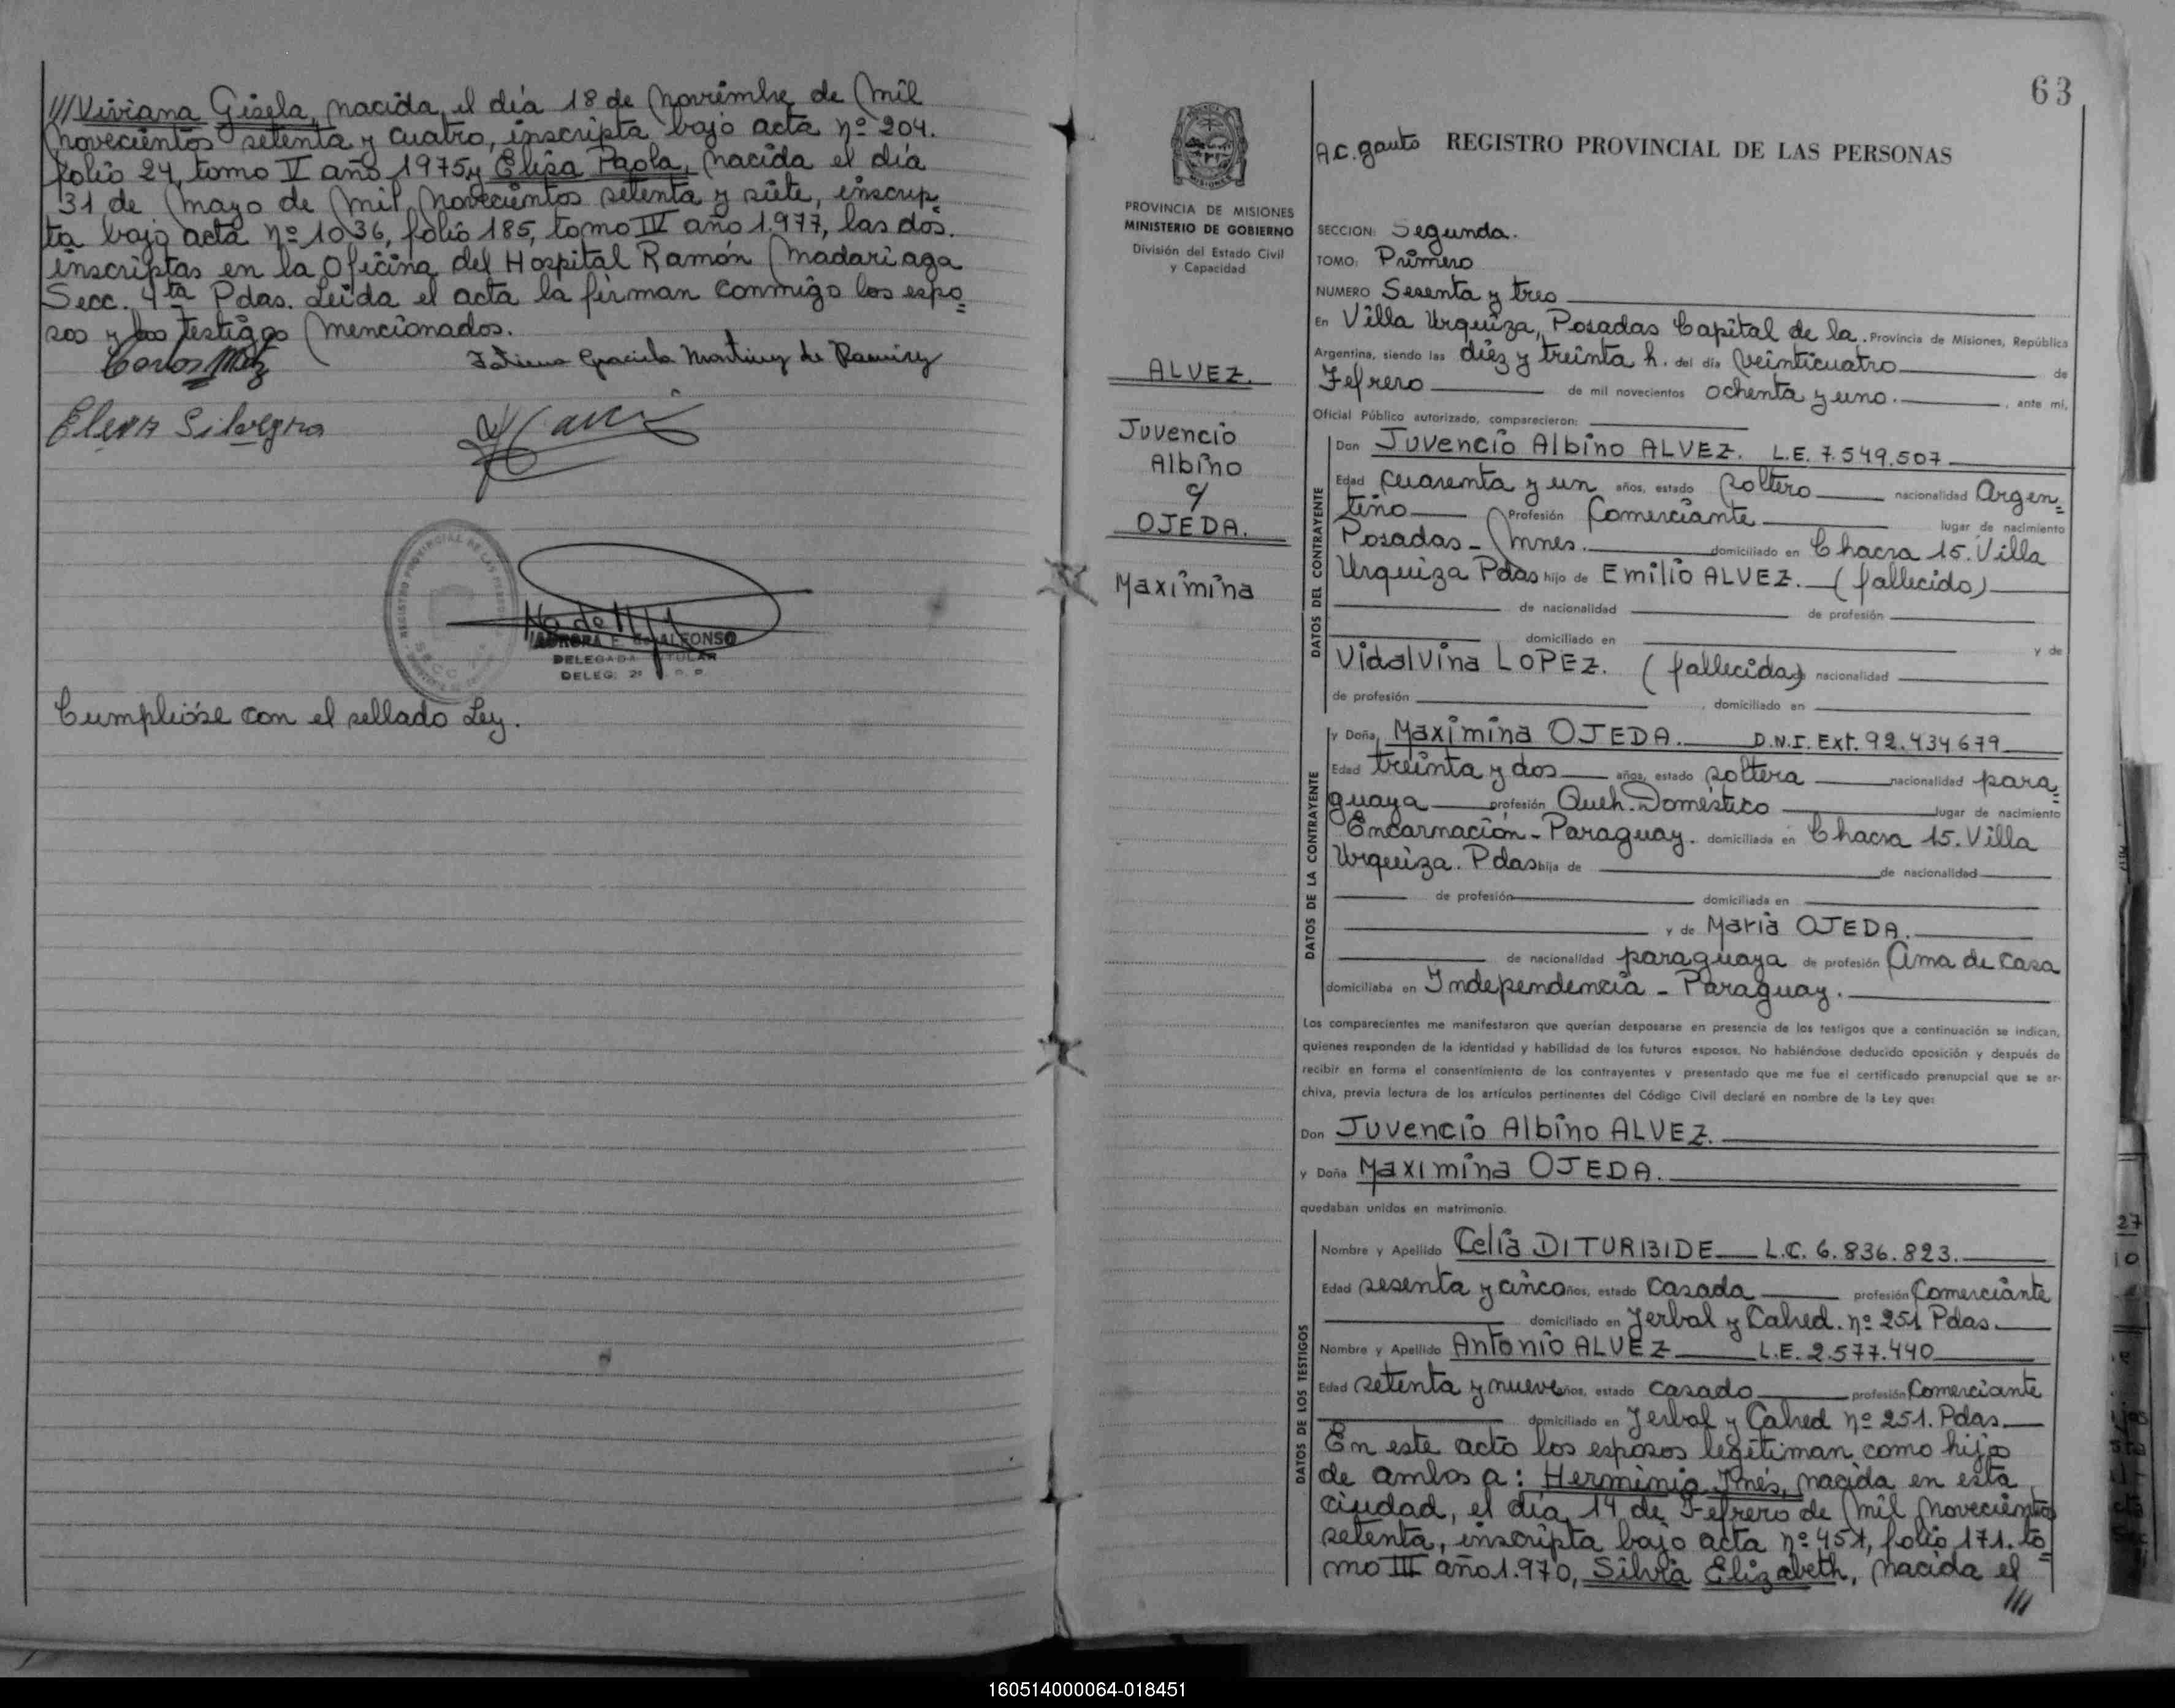 ///Viviana Gisela, nacida el día 18 de Noviembre de Mil
novecientos setenta y cuatro, inscripta bajo acta nº 204.
folio 24, tomo V año 1975 y Elisa Paola, nacida el día
31 de Mayo de Mil Novecientos setenta y siete, inscrip
ta bajo acta nº 1036, folio 185, tomo IV año 1.977, las dos.
inscriptas en la Oficina del Hospital Ramón Madariaga
Secc. 4ta Pdas. Leida el acta la firman conmigo los espo=
sos y los testigos mencionados.
Graciela de Ramirez
Elena
REGISTRO PROVINCIAL DE LAS
AURORA E. de ALFONSO
DELEGADA TITULAR
DELEG. 2ª
Cumplióse con el sellado Ley.
63
A.C. Gauto REGISTRO PROVINCIAL DE LAS PERSONAS
MISIONES
PROVINCIA DE MISIONES
MINISTERIO DE GOBIERNO
División del Estado Civil
y Capacidad
ALVEZ.
Juvencio
Albino
y
OJEDA.
Maximina
SECCION: Segunda.
TOMO: Primero
NUMERO Sesenta y tres
En Villa Urquiza, Posadas Capital de la. Provincia de Misiones, República
Argentina, siendo las diez y treinta h. del día Veinticuatro de
Febrero de mil novecientos ochenta y uno. , ante mí,
Oficial Público autorizado, comparecieron:
DATOS DEL CONTRAYENTE
Don Juvencio Albino ALVEZ. L.E. 7.549.507
Edad Cuarenta y un años, estado Soltero nacionalidad Argen=
tino Profesión Comerciante lugar de nacimiento
Posadas - Mnes. domiciliado en Chacra 15. Villa
Urquiza Pdas hijo de Emilio ALVEZ. (fallecido)
de nacionalidad de profesión
domiciliado en y de
Vidalvina LOPEZ. (fallecida) nacionalidad
de profesión , domiciliado en
DATOS DE LA CONTRAYENTE
y Doña, Maximina OJEDA. D.N.I. Ext. 92.434679
Edad treinta y dos años, estado Soltera nacionalidad para=
guaya profesión Queh. Doméstico lugar de nacimiento
Encarnación - Paraguay. domiciliada en Chacra 15. Villa
Urquiza. Pdas hija de de nacionalidad
de profesión domiciliada en
y de Maria OJEDA.
de nacionalidad paraguaya de profesión Ama de casa
domiciliaba en Independencia - Paraguay.
Los comparecientes me manifestaron que querían desposarse en presencia de los testigos que a continuación se indican,
quienes responden de la identidad y habilidad de los futuros esposos. No habiéndose deducido oposición y después de
recibir en forma el consentimiento de los contrayentes y presentado que me fue el certificado prenupcial que se ar-
chiva, previa lectura de los artículos pertinentes del Código Civil declaré en nombre de la Ley que:
Don Juvencio Albino ALVEZ.
y Doña Maximina OJEDA.
quedaban unidos en matrimonio.
DATOS DE LOS TESTIGOS
Nombre y Apellido Celia DITURBIDE L.C. 6.836.823.
Edad sesenta y cinco años, estado casada profesión Comerciante
domiciliado en Jerbal y Cahed. nº 251 Pdas.
Nombre y Apellido Antonio ALVEZ L.E. 2.577.440
Edad setenta y nueve años, estado casado profesión Comerciante
domiciliado en Jerbal y Cahed nº 251. Pdas.
En este acto los esposos legitiman como hijos
de ambos a: Herminia Inés, nacida en esta
ciudad, el día 14 de Febrero de Mil Novecientos
setenta, inscripta bajo acta nº 451, folio 171. to=
mo III año 1.970, Silvia Elizabeth, nacida el
///
27
160514000064-018451